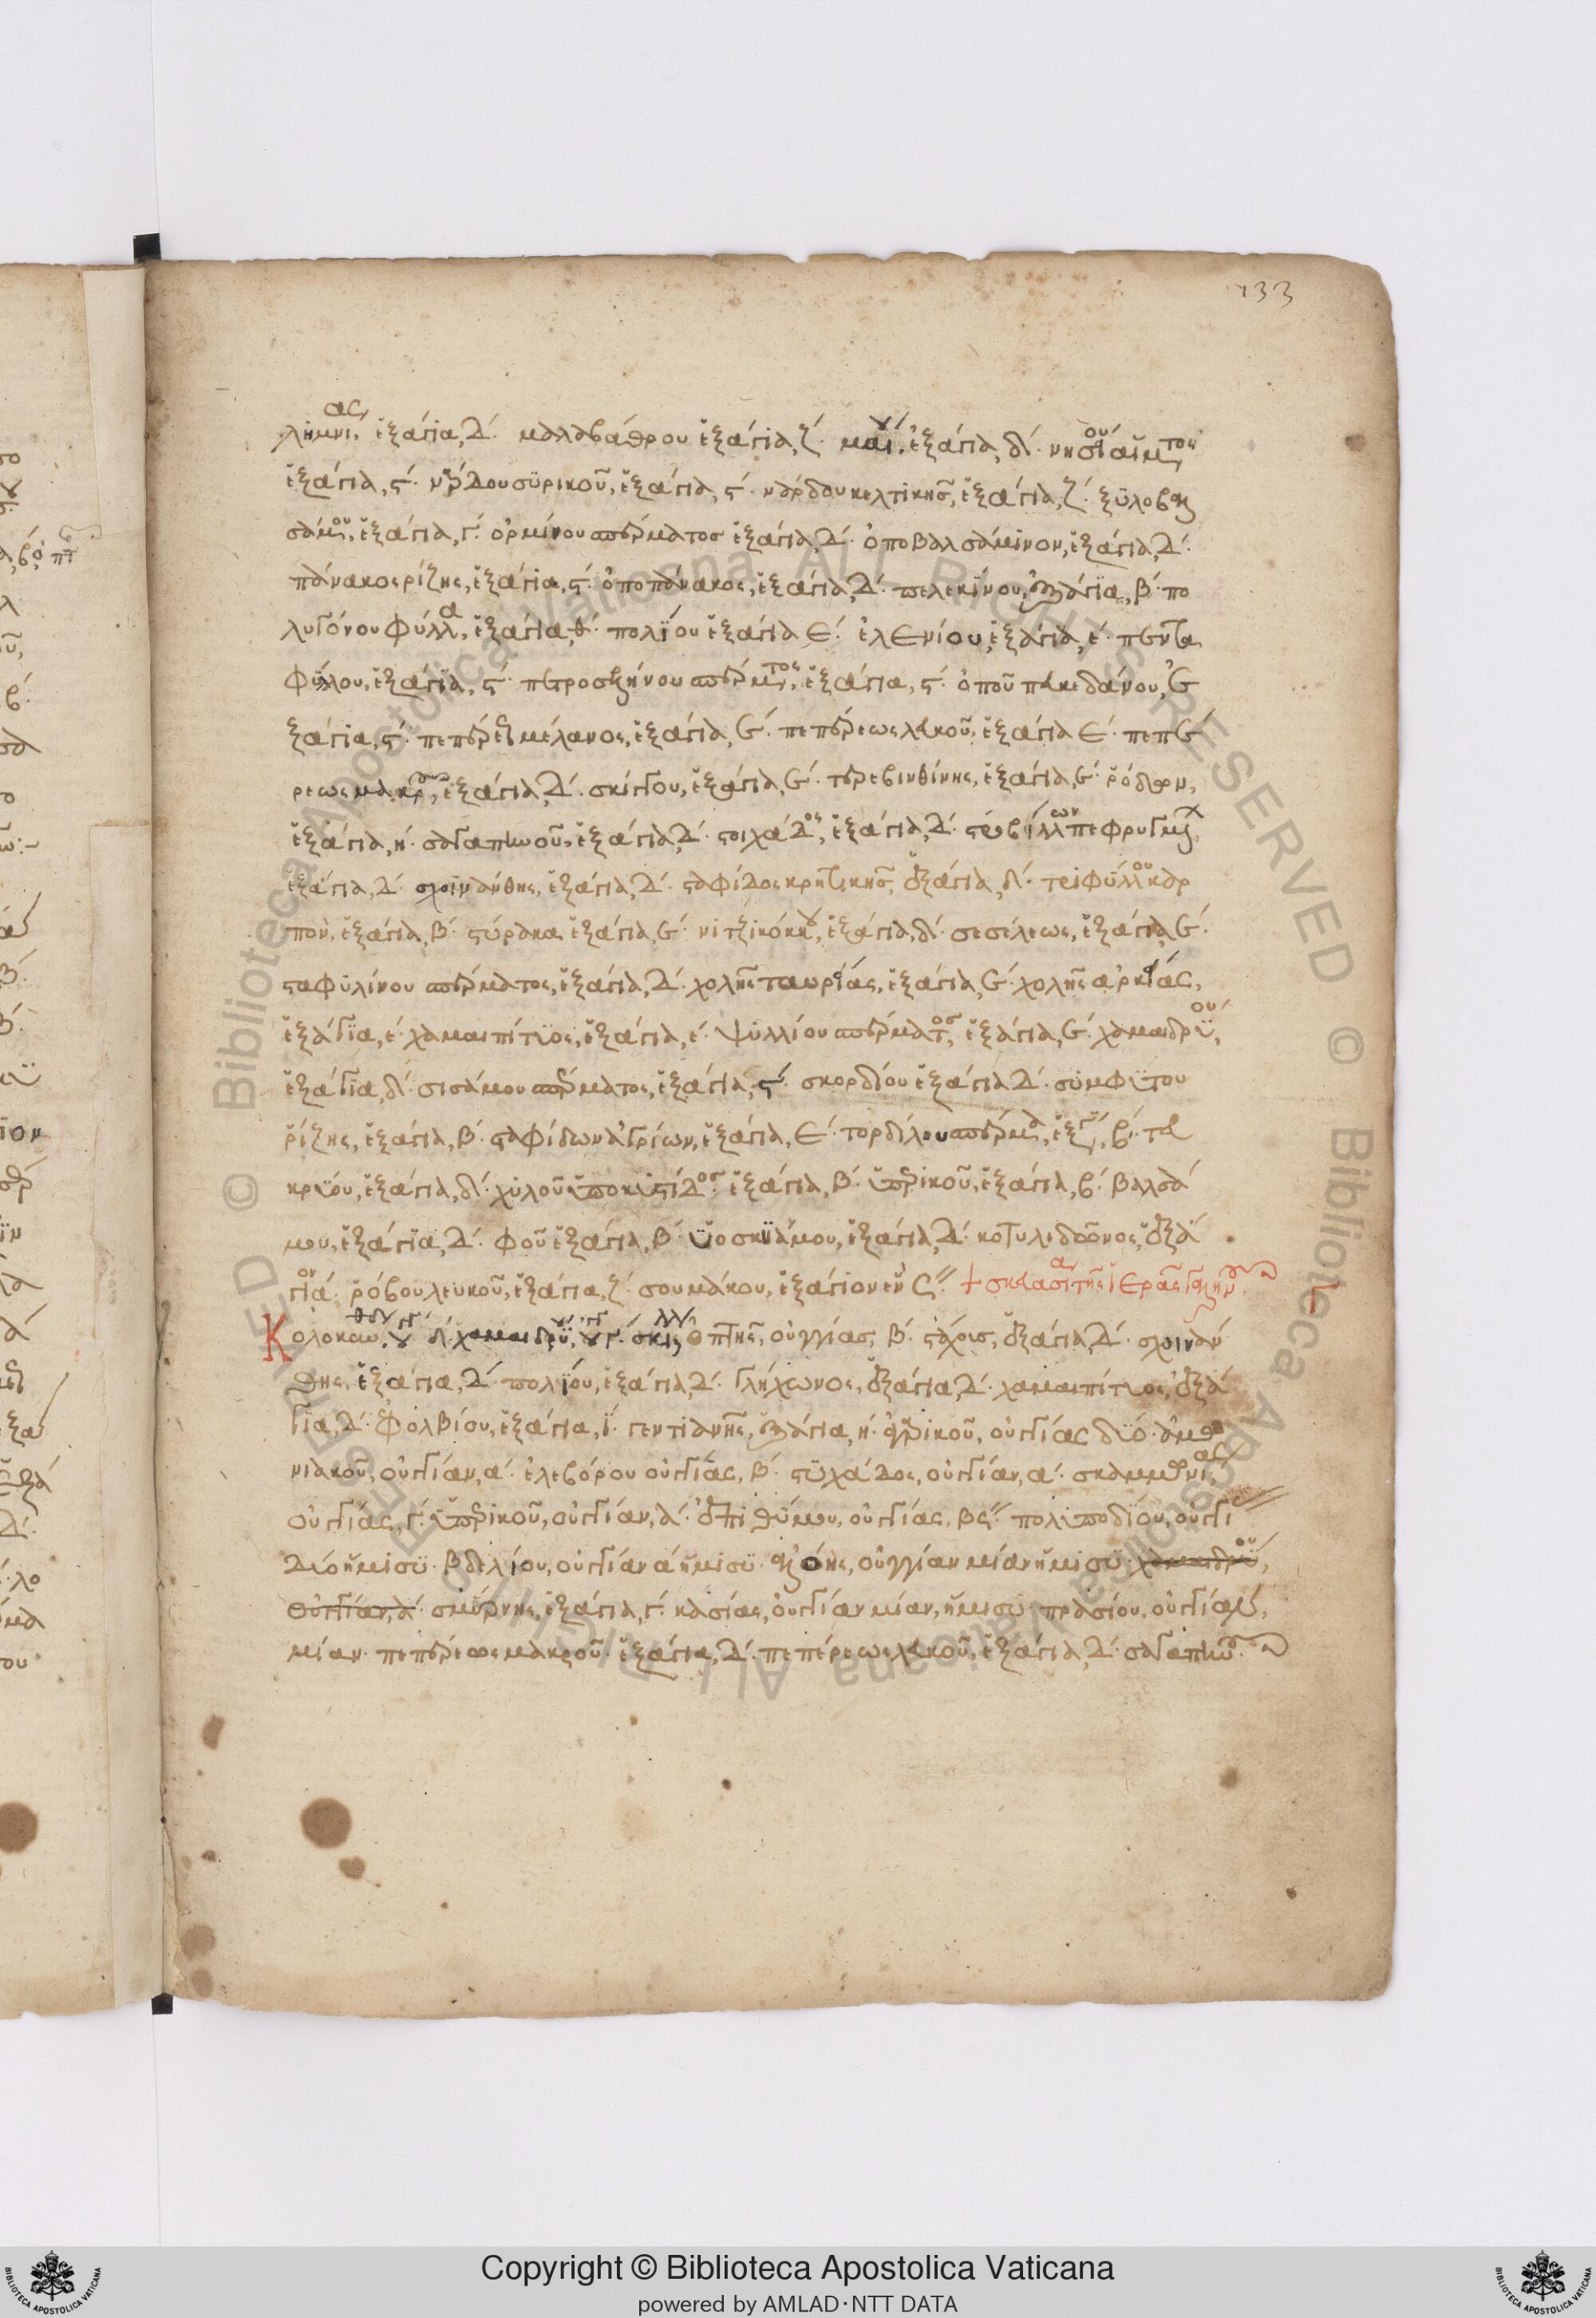 133
λημνίας, ἐξάγια, δ΄. μαλαβάθρου ἐξάγια, ζ΄. ἐξάγια, δ΄.
ἐξάγια, ϛ΄. νάρδου συρικοῦ, ἐξάγια, ϛ΄. νάρδου κελτικῆσ, ἐξάγια, ζ΄. ξυλοβαλ
σάμου, ἐξάγια, γ΄. ὁρμίνου σπέρματοσ ἐξάγια, δ΄. ὀποβαλσάμϊνον, ἐξάγια, δ΄.
πάνακος ρίζης, ἐξάγια, ϛ΄. ὀποπάνακος, ἐξάγια, δ΄. πελεκίνου, ἐξάγϊα, β΄. πο
λυγόνου φύλλα, ἐξάγια, θ΄. πολΐου ἐξάγια ε΄. ἐλενίου, ἐξάγια, ε΄. πεντα
φύλλου, ἐξάγϊα, ϛ΄. πετροσελήνου σπέρματος, ἐξάγια, ϛ΄. ὀποῦ πευκεδάνου, ἐ
ξάγια, ϛ΄. πεπέρεως μέλανος, ἐξάγια, ϛ΄. πεπέρεως λευκοῦ, ἐξάγια ε΄. πεπέ
ρεως μακροῦ, ἐξάγια, δ΄. σκίγγου, ἐξάγια, ϛ΄. τερεβινθίνης, ἐξάγια, ϛ΄.
ἐξάγια, η΄. σαγαπηνοῦ, ἐξάγια, δ΄. στιχάδος, ἐξάγια, δ΄. στροβίλλων πεφρυγμένων
ἐξάγια, δ΄. σχοινάνθης, ἐξάγια, δ΄. σταφίδος κρητικῆσ, ἐξάγια, δ΄. τριφύλλου καρ
ποῦ, ἐξάγια, β΄. στύρακα ἐξάγια, ϛ΄. ἐξάγια, δ΄. σεσέλεως, ἐξάγια, ϛ΄.
σταφυλίνου σπέρματος, ἐξάγια, δ΄. χολῆς ταυρίας, ἐξάγια, ϛ΄. χολῆς ἀρκίας,
ἐξάγϊα, ε΄. χαμαιπίτυος, ἐξάγια, ε΄. ψυλλίου σπέρματος, ἐξάγια, ϛ΄. χαμαιδρϋοῦ,
ἐξάγϊα, δ΄. σισάμου σπέρματος, ἐξάγια, ϛ΄. σκορδίου ἐξάγια δ΄. συμφϋτου
ρίζης, ἐξάγια, β΄. σταφίδων ἀγρίων, ἐξάγια, ε΄. τορδίλου σπέρμα, β΄. τευ
κρίου, ἐξάγια, δ΄. χυλοῦ ὑποκιστίδος ἐξάγια, β΄. ὑπερικοῦ, ἐξάγια, β΄. βαλσά
μου, ἐξάγϊα, δ΄. φοῦ ἐξάγια, β΄. ὑοσκυάμου, ἐξάγια, δ΄. κοτυληδόνος, ἐξά
για ρόβου λευκοῦ, ἐξάγια, ζ΄. σουμάκου, ἐξάγιον ἓν + σκευασία τῆς ἱερᾶς γαληνοῦ
Κολοκυνθ δ΄. χαμαιδρϋ, γ΄. ὀπτῆς, οὐγγίας, β΄. ἀγάρισ, ἐξάγια, δ΄. σχοινάν
θης, ἐξάγια, δ΄. πολΐου, ἐξάγια, δ΄. γλήχωνος, ἐξάγια, δ΄. χαμαιπίτυος, ἐξά
γϊα, δ΄. φολβίου, ἐξάγια, ϊ΄. γεντιανῆς, ἐξάγια, η΄. οὐγγίας δύο. ἀμω
νιακοῦ, οὐγγίαν, α΄. ἐλεβόρου οὐγγίας, β΄. στυχάδος, οὐγγίαν, α΄. σκαμμωνίας
οὐγγίας, γ΄. ὑπερικοῦ, οὐγγίαν, α΄. ἐπιθύμου, οὐγγίας, βϛ΄΄. πολυποδίου, οὐγγί
δύο ἥμισυ. βδελίου, οὐγγίαν α ἥμισυ. ἀλόης, οὐγγίαν μίαν ἥμισυ. χαμαιδρϋοῦ,
οὐγγίαν, α΄. σμύρνης, ἐξάγια, γ΄. κασίας, οὐγγίαν μίαν, ἥμισυ πρασίου, οὐγγίαν,
μίαν. πεπέρεως μακροῦ. ἐξάγια, δ΄. πεπέρεως λευκοῦ, ἐξάγια, δ΄. σαγαπηνοῦ.
Copyright © Biblioteca Apostolica Vaticana
powered by AMLAD·NTT DATA